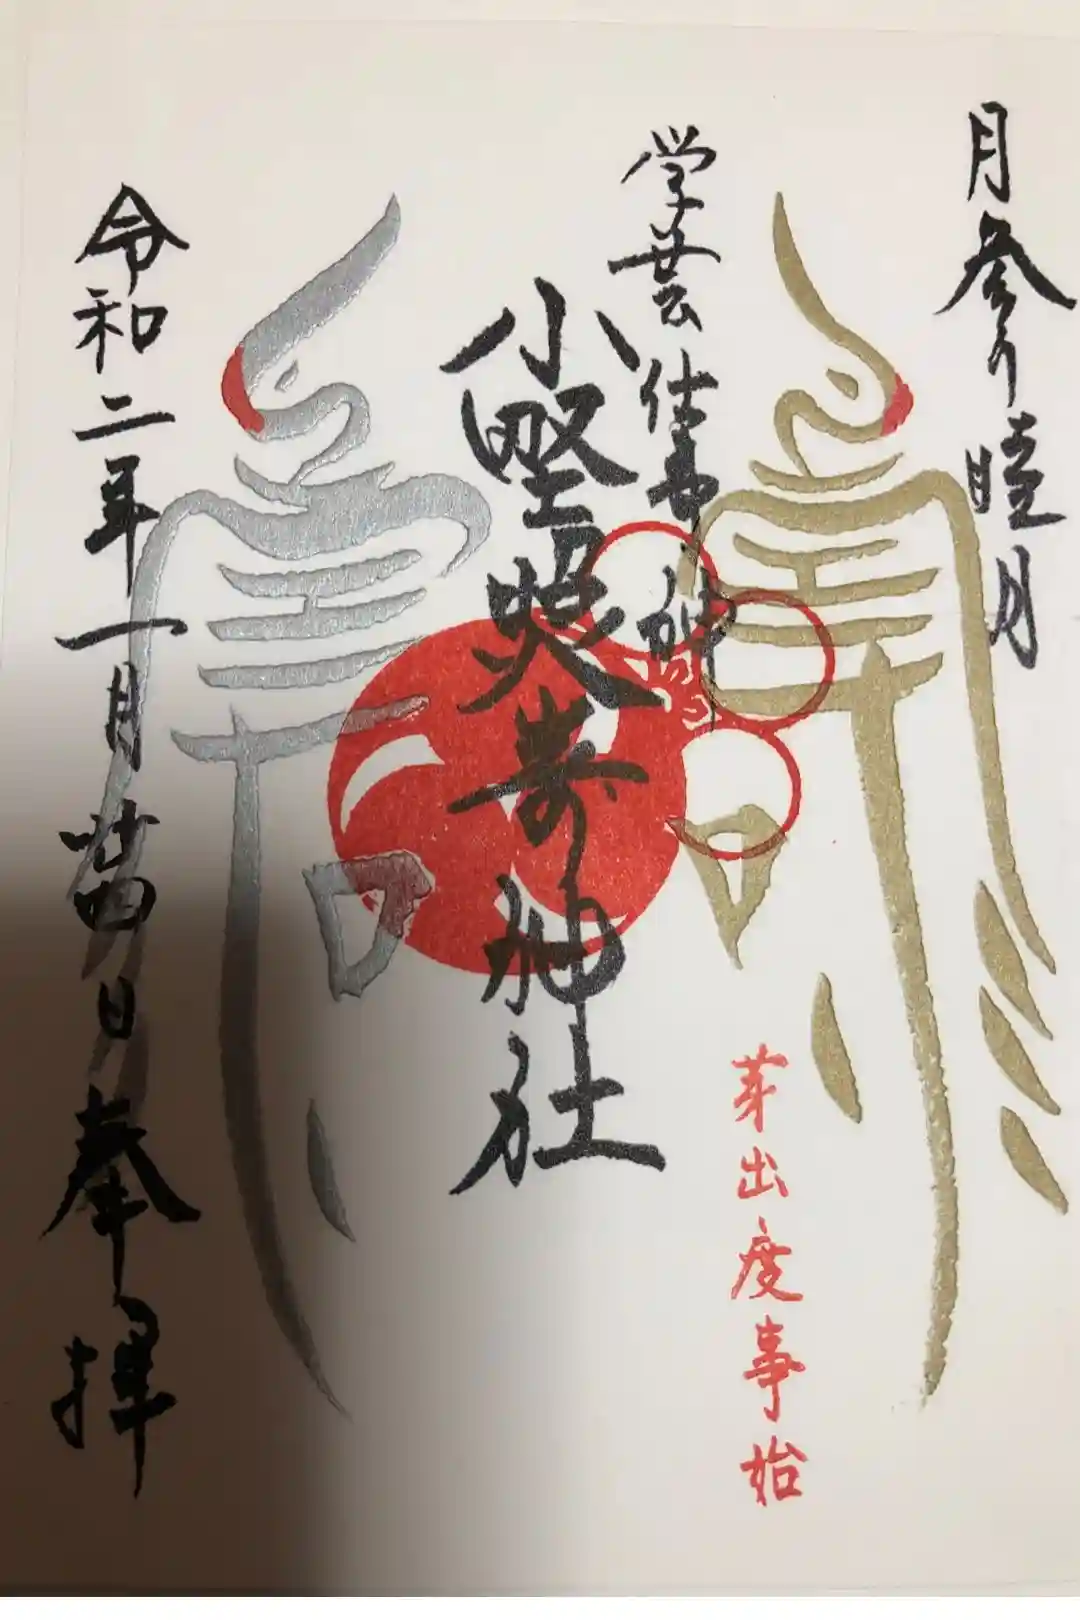 月参り睦月
学芸仕事の神
小野照崎神社
芽出度事始
令和二年一月廿四日奉拝